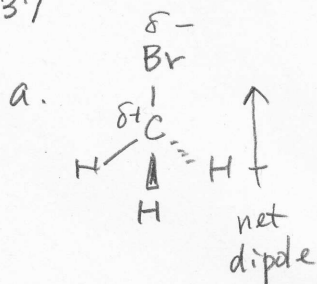 37
δ −
Br
a.
δ+ C
H H
H
net
dipole